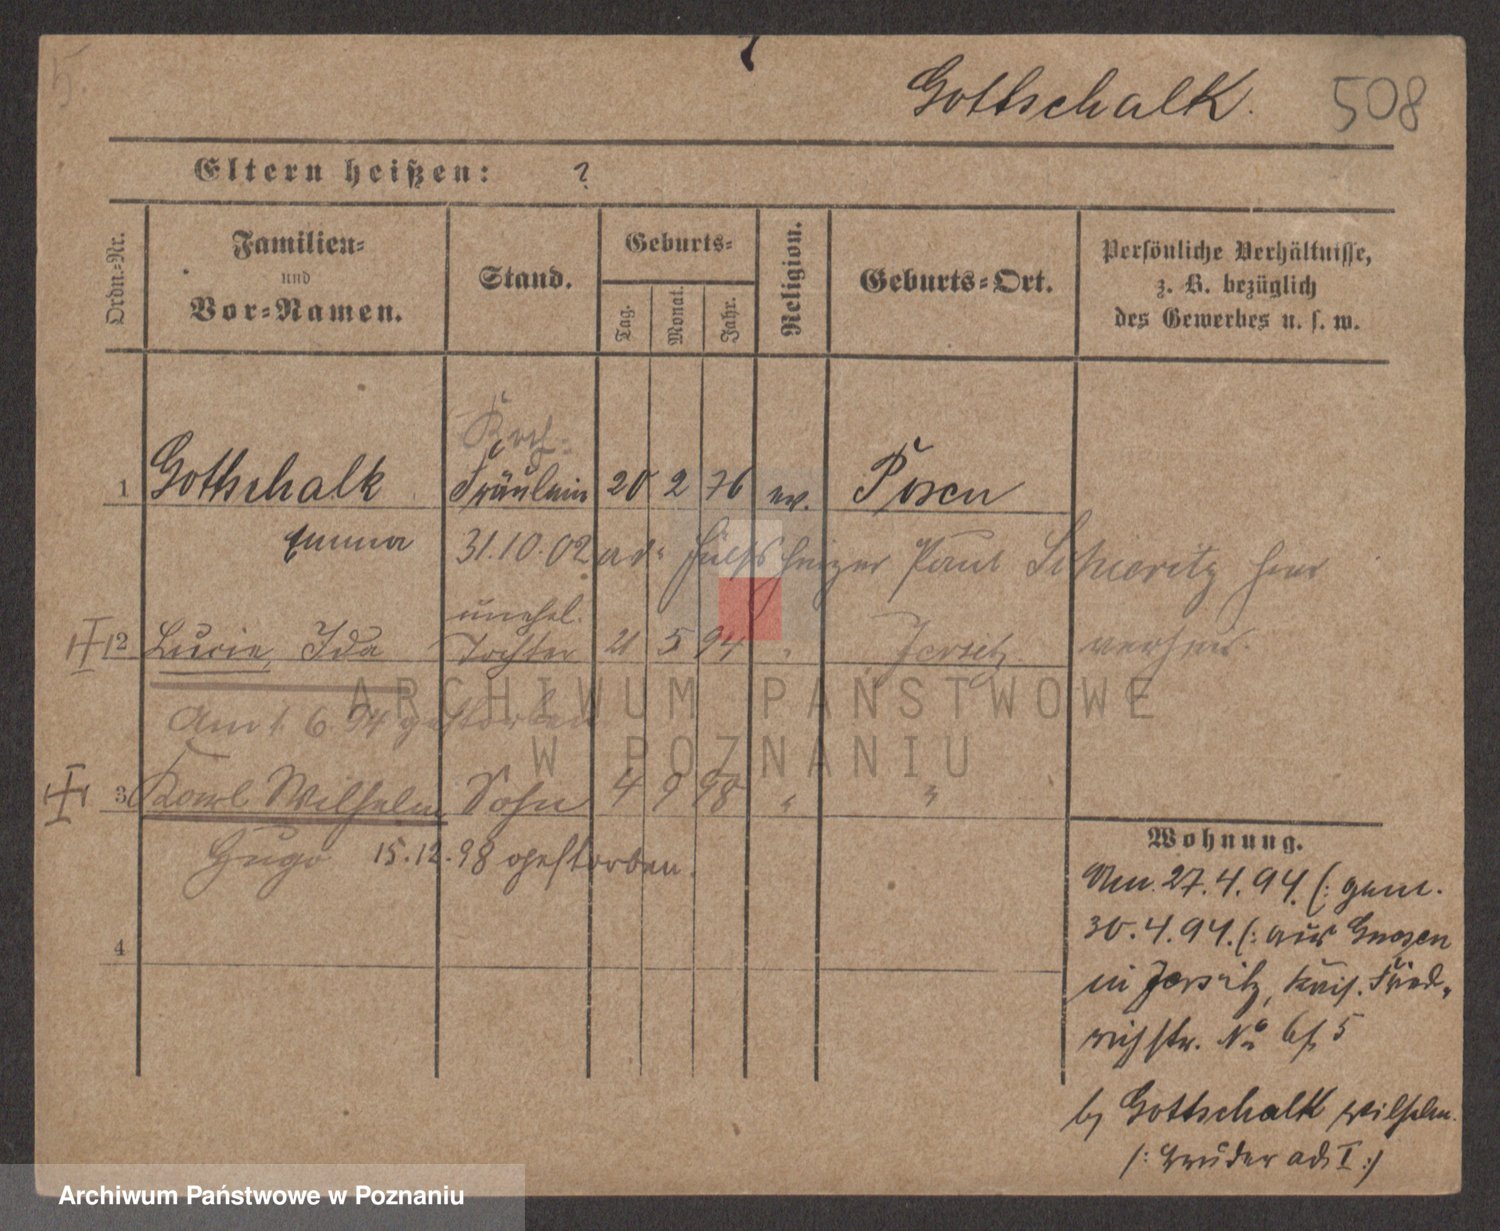 5.
Gottschalk.
508
Eltern heißen: ?
Ordn.=Nr.
Familien=
und
Vor=Namen.
Stand.
Geburts=
Tag.
Monat.
Jahr.
Religion.
Geburts=Ort.
Persönliche Verhältnisse,
z. B. bezüglich
des Gewerbes u. s. w.
Koch=
1 Gottschalk Fräulein 20 2 76 ev. Posen
Emma 31.10.02 ad. Paul
unehel.
12 Lucie, Ida Tochter 21 5 94 " Jersitz.
Am 1. 6. 94 gestorben
3 Karl Wilhelm Sohn 4 9 98 " "
Hugo 15.12.98 gestorben.
4
Wohnung.
27.4.94. (: gem.
30.4.94. (: aus Gnesen
in Jersitz, Kais. Fried=
richstr. No 6/5
b/ Gottschalk Wilhelm.
/: Bruder ad I :/
ARCHIWUM PAŃSTWOWE
W POZNANIU
Archiwum Państwowe w Poznaniu